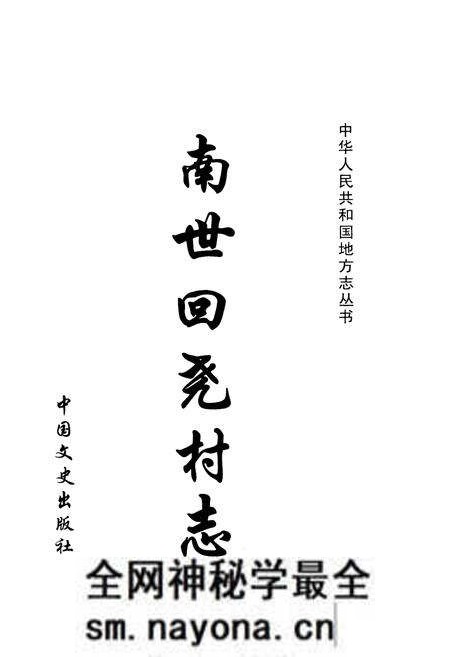 中华人民共和国地方志丛书
南世回尧村志
中国文史出版社
全网神秘学最全
sm.nayona.cn